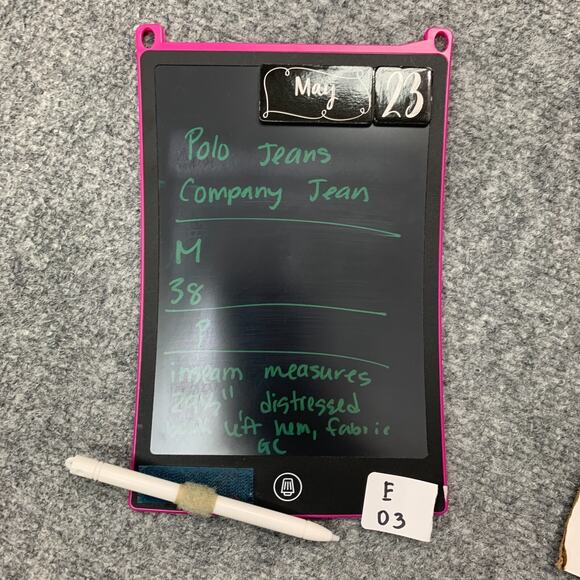 May 23
Polo Jeans
Company Jean
M
38
P
inseam measures
distressed
left hem, fabric
GC
E
03